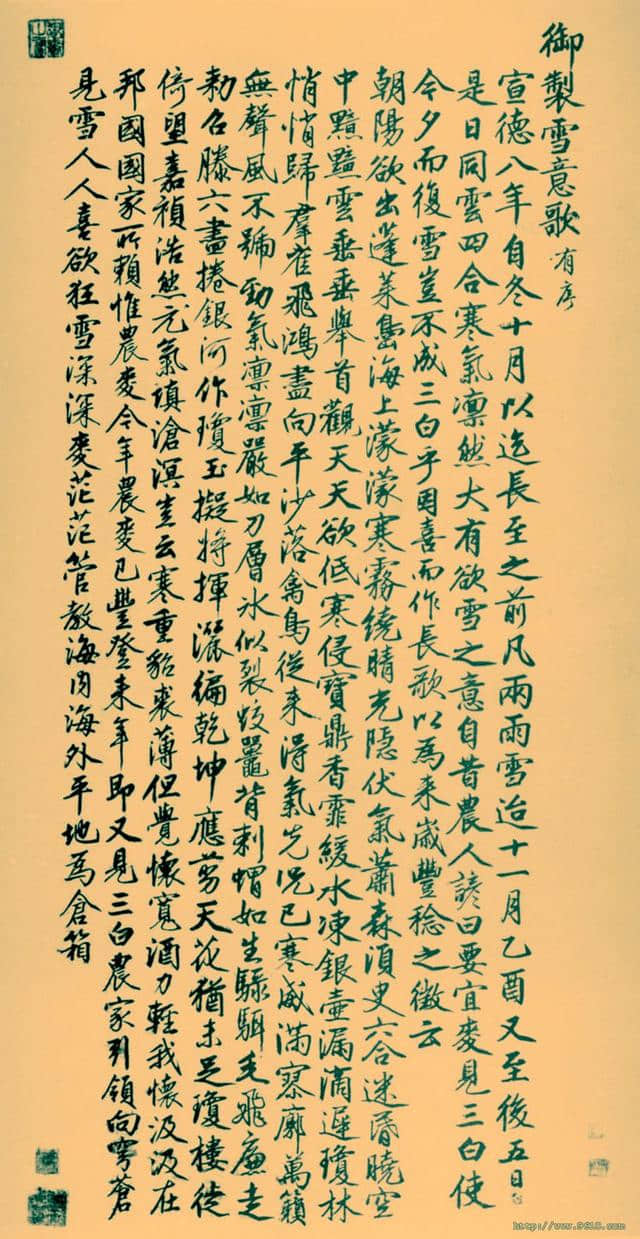 御製雪意歌 有序
宣德八年自冬十月以迄長至之前凡兩雨雪迨十一月乙酉又至後五日也
是日同雲四合寒氣凛然大有欲雪之意自昔農人諺曰要宜麥見三白使
今夕而復雪豈不成三白乎因喜而作長歌以為來歲豐稔之徵云
朝陽欲出蓬萊島海上濛濛寒霧繞晴光隱伏氣蕭森須臾六合迷昏曉空
中黯黯雲垂垂舉首觀天天欲低寒侵寶鼎香霏緩水凍銀壺漏滴遲瓊林
悄悄歸羣雀飛鴻盡向平沙落禽鳥從來得氣先況已寒威滿寥廓萬籟
無聲風不號勁氣凛凛嚴如刀層冰似裂蛟鼉背刺蝟如生騄駬毛飛廉走
勅召滕六盡捲銀河作瓊玉擬將揮灑徧乾坤應剪天花猶未足瓊樓徙
倚望嘉禎浩然元氣填滄溟豈云寒重貂裘薄但覺懷寬酒力輕我懷汲汲在
邦國國家所賴惟農麥今年農麥已豐登來年即又見三白農家引領向穹蒼
見雪人人喜欲狂雪深深麥茫茫管教海內海外平地為倉箱
http://www.9610.com